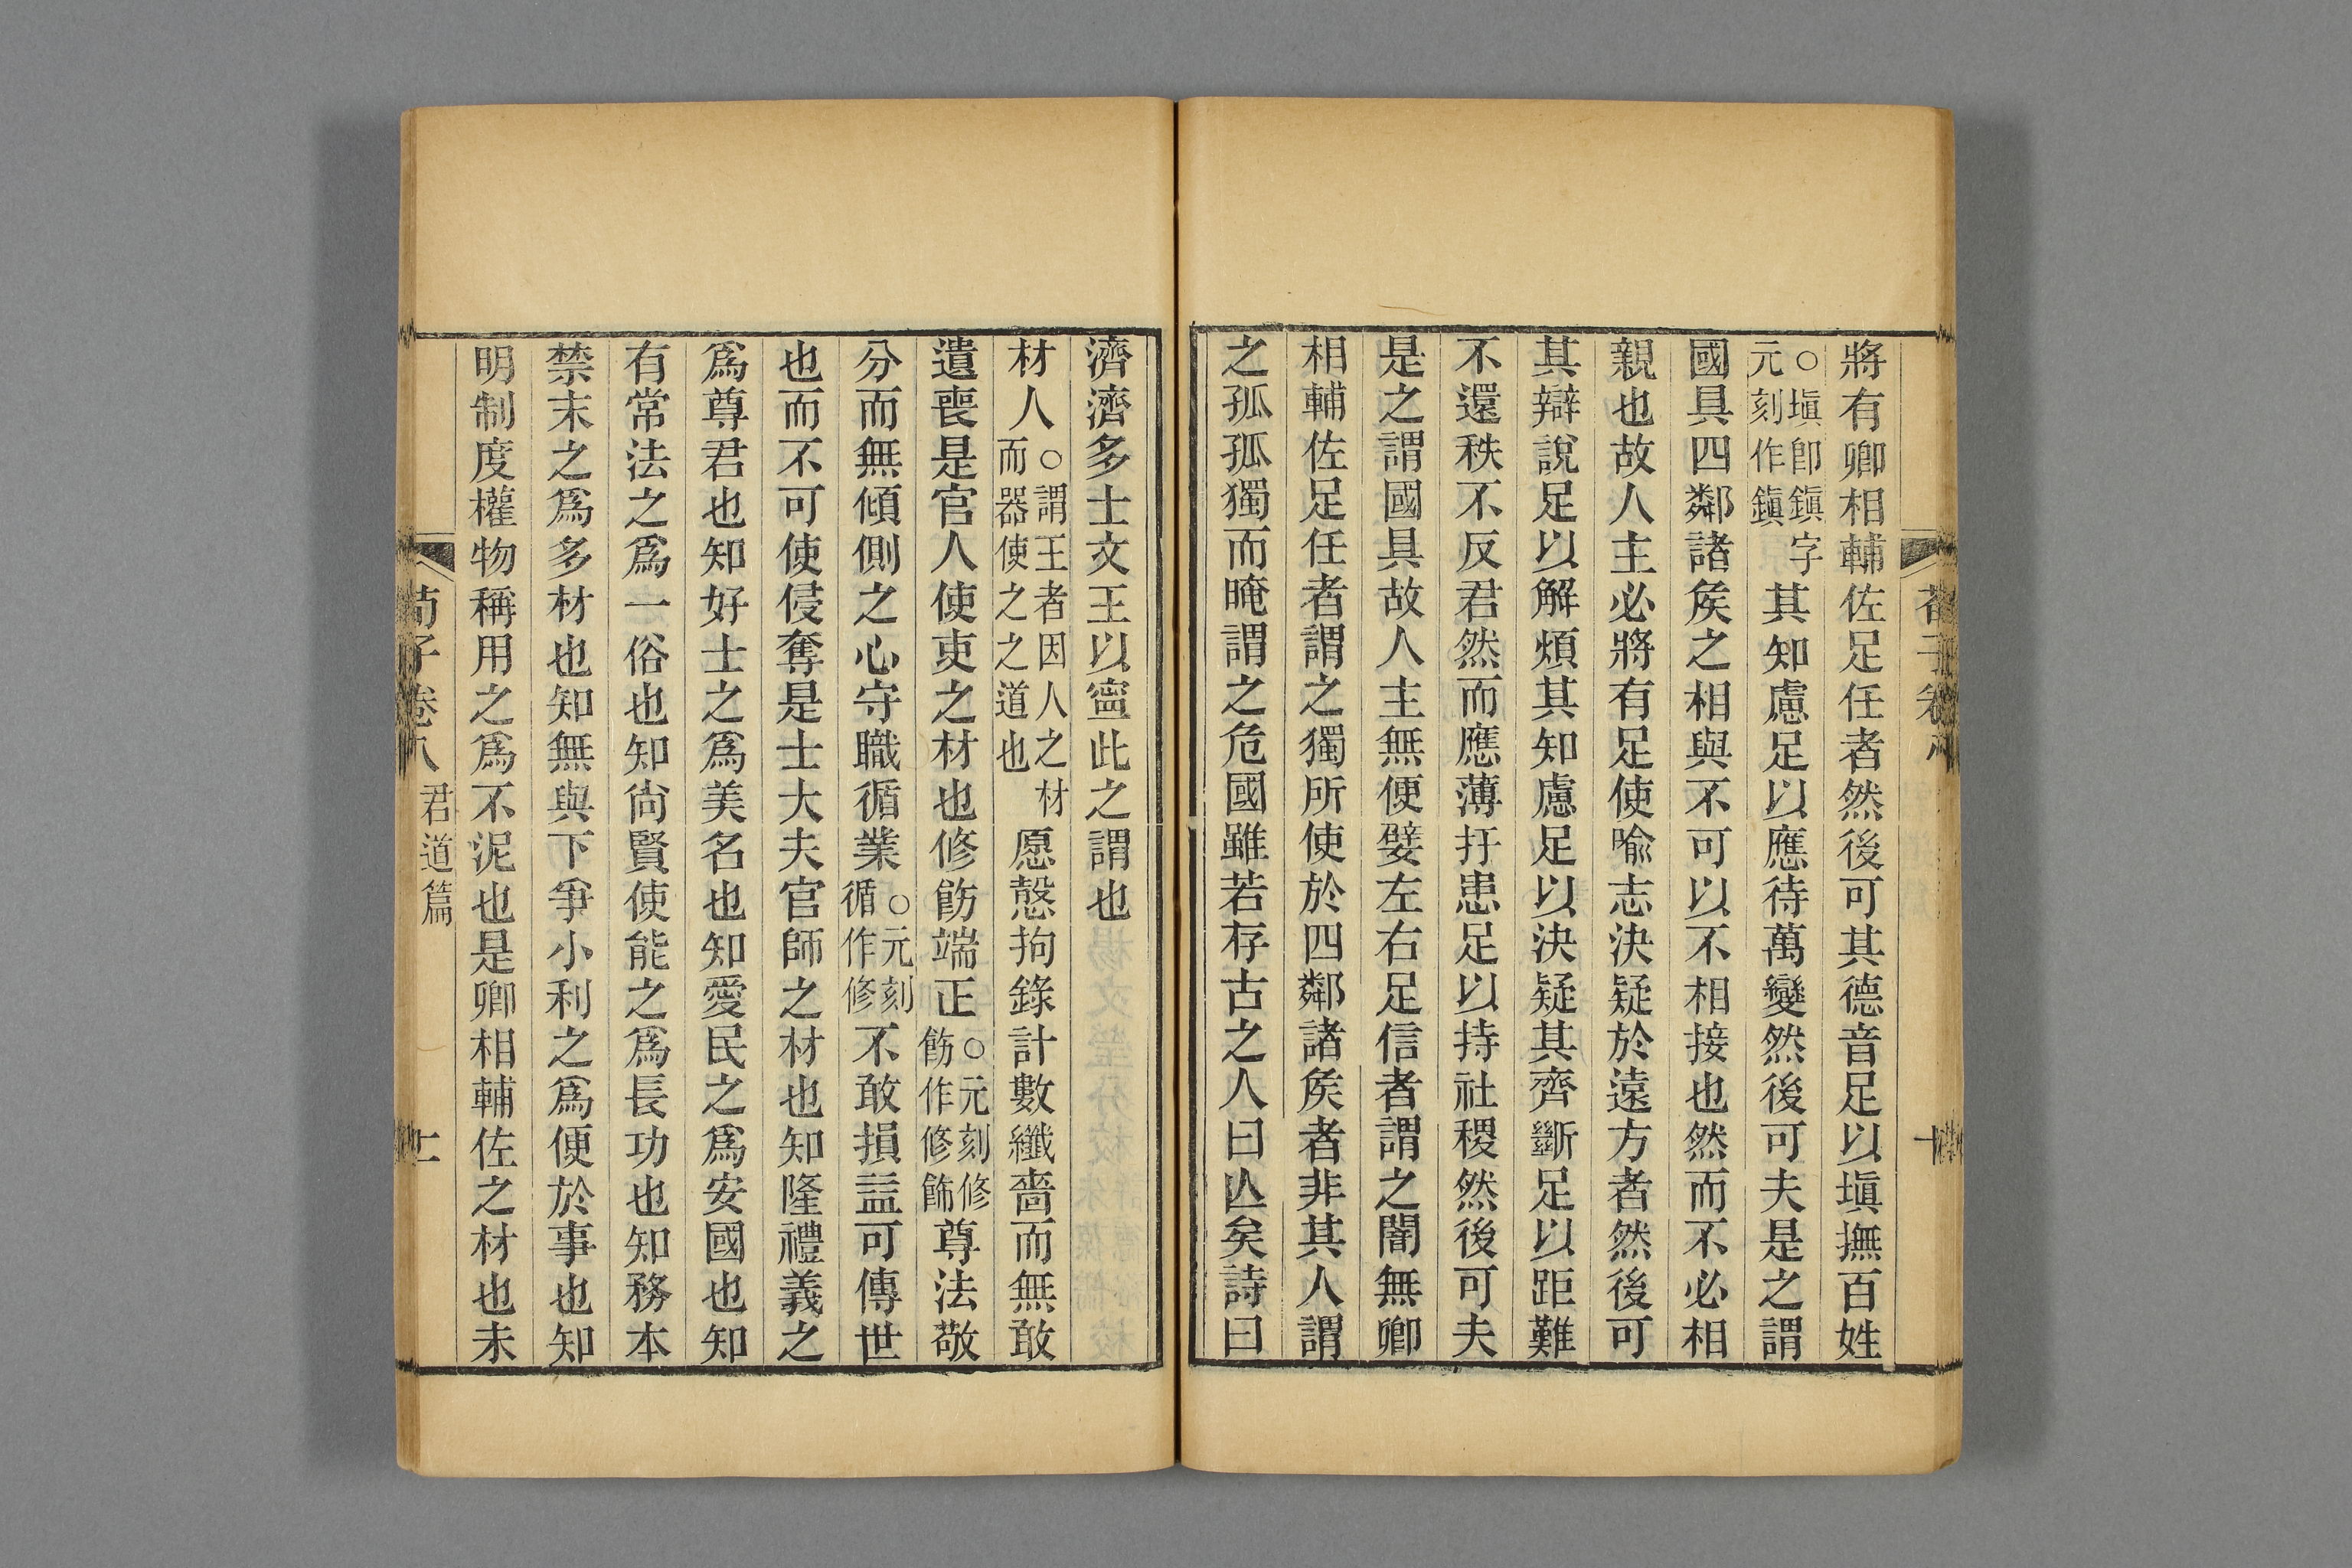 將有卿相輔佐足任者然後可其德音足以塡撫百姓
○塡卽鎭字元刻作鎭其知慮足以應待萬變然後可夫是之謂
國具四鄰諸矦之相與不可以不相接也然而不必相
親也故人主必將有足使喩志決疑於遠方者然後可
其辯說足以解煩其知慮足以決疑其齊斷足以距難
不還秩不反君然而應薄扞患足以持社稷然後可夫
是之謂國具故人主無便嬖左右足信者謂之闇無卿
相輔佐足任者謂之獨所使於四鄰諸矦者非其人謂
之孤孤獨而晻謂之危國雖若存古之人曰亾矣詩曰
濟濟多士文王以寍此之謂也
材人○謂王者因人之材而器使之之道也愿愨拘錄計數纖嗇而無敢
遺喪是官人使吏之材也修飭端正○元刻修飭作修飾尊法敬
分而無傾側之心守職循業○元刻循作修不敢損益可傳世
也而不可使侵奪是士大夫官師之材也知隆禮義之
爲尊君也知好士之爲美名也知愛民之爲安國也知
有常法之爲一俗也知尙賢使能之爲長功也知務本
禁末之爲多材也知無與下爭小利之爲便於事也知
明制度權物稱用之爲不泥也是卿相輔佐之材也未
荀子卷八 君道篇